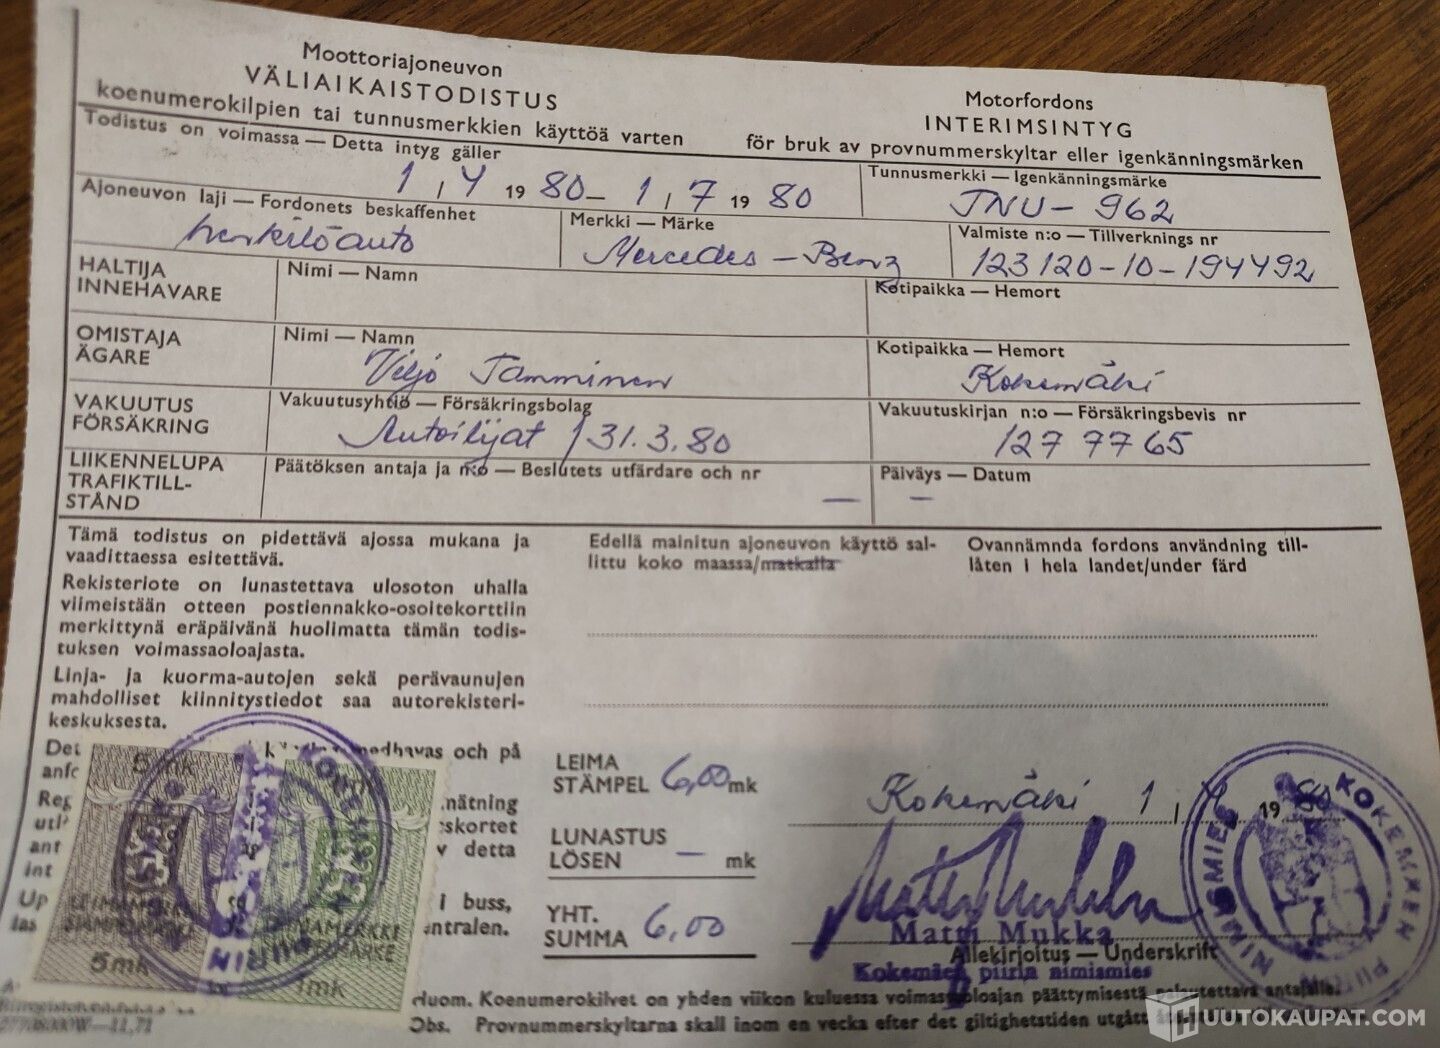 Moottoriajoneuvon
VÄLIAIKAISTODISTUS
koenumerokilpien tai tunnusmerkkien käyttöä varten
Motorfordons
INTERIMSINTYG
för bruk av provnummerskyltar eller igenkänningsmärken
Todistus on voimassa — Detta intyg gäller
1 / 4 19 80 – 1 / 7 19 80
Tunnusmerkki — Igenkänningsmärke
JNU – 962
Ajoneuvon laji — Fordonets beskaffenhet
henkilöauto
Merkki — Märke
Mercedes – Benz
Valmiste n:o — Tillverknings nr
123120-10-194492
HALTIJA
INNEHAVARE
Nimi — Namn
Kotipaikka — Hemort
OMISTAJA
ÄGARE
Nimi — Namn
Viljo Tamminen
Kotipaikka — Hemort
Kokemäki
VAKUUTUS
FÖRSÄKRING
Vakuutusyhtiö — Försäkringsbolag
Autoilijat / 31.3.80
Vakuutuskirjan n:o — Försäkringsbevis nr
127 77 65
LIIKENNELUPA
TRAFIKTILL-
STÅND
Päätöksen antaja ja n:o — Beslutets utfärdare och nr
—
Päiväys — Datum
—
Tämä todistus on pidettävä ajossa mukana ja
vaadittaessa esitettävä.
Rekisteriote on lunastettava ulosoton uhalla
viimeistään otteen postiennakko-osoitekorttiin
merkittynä eräpäivänä huolimatta tämän todis-
tuksen voimassaoloajasta.
Linja- ja kuorma-autojen sekä perävaunujen
mahdolliset kiinnitystiedot saa autorekisteri-
keskuksesta.
Edellä mainitun ajoneuvon käyttö sal-
littu koko maassa/matkalla
Ovannämnda fordons användning till-
låten i hela landet/under färd
Det
medhavas och på
anfo
Reg
mätning
utl
skortet
ant
v detta
int
Up
i buss,
las
entralen.
5mk
LEIMAMERKKI
STÄMPELMÄRKE
5mk
1mk
LEIMA
STÄMPEL 6,00 mk
LUNASTUS
LÖSEN — mk
YHT.
SUMMA 6,00
Kokemäki 1 / 4 19 80
Matti Mukka
Matti Mukka
Allekirjoitus — Underskrift
Kokemäen piirin nimismies
KOKEMÄEN PIIRIN NIMISMIES
Huom. Koenumerokilvet on yhden viikon kuluessa voimassaoloajan päättymisestä palautettava antajalle.
Obs. Provnummerskyltarna skall inom en vecka efter det giltighetstiden utgått
HUUTOKAUPAT.COM